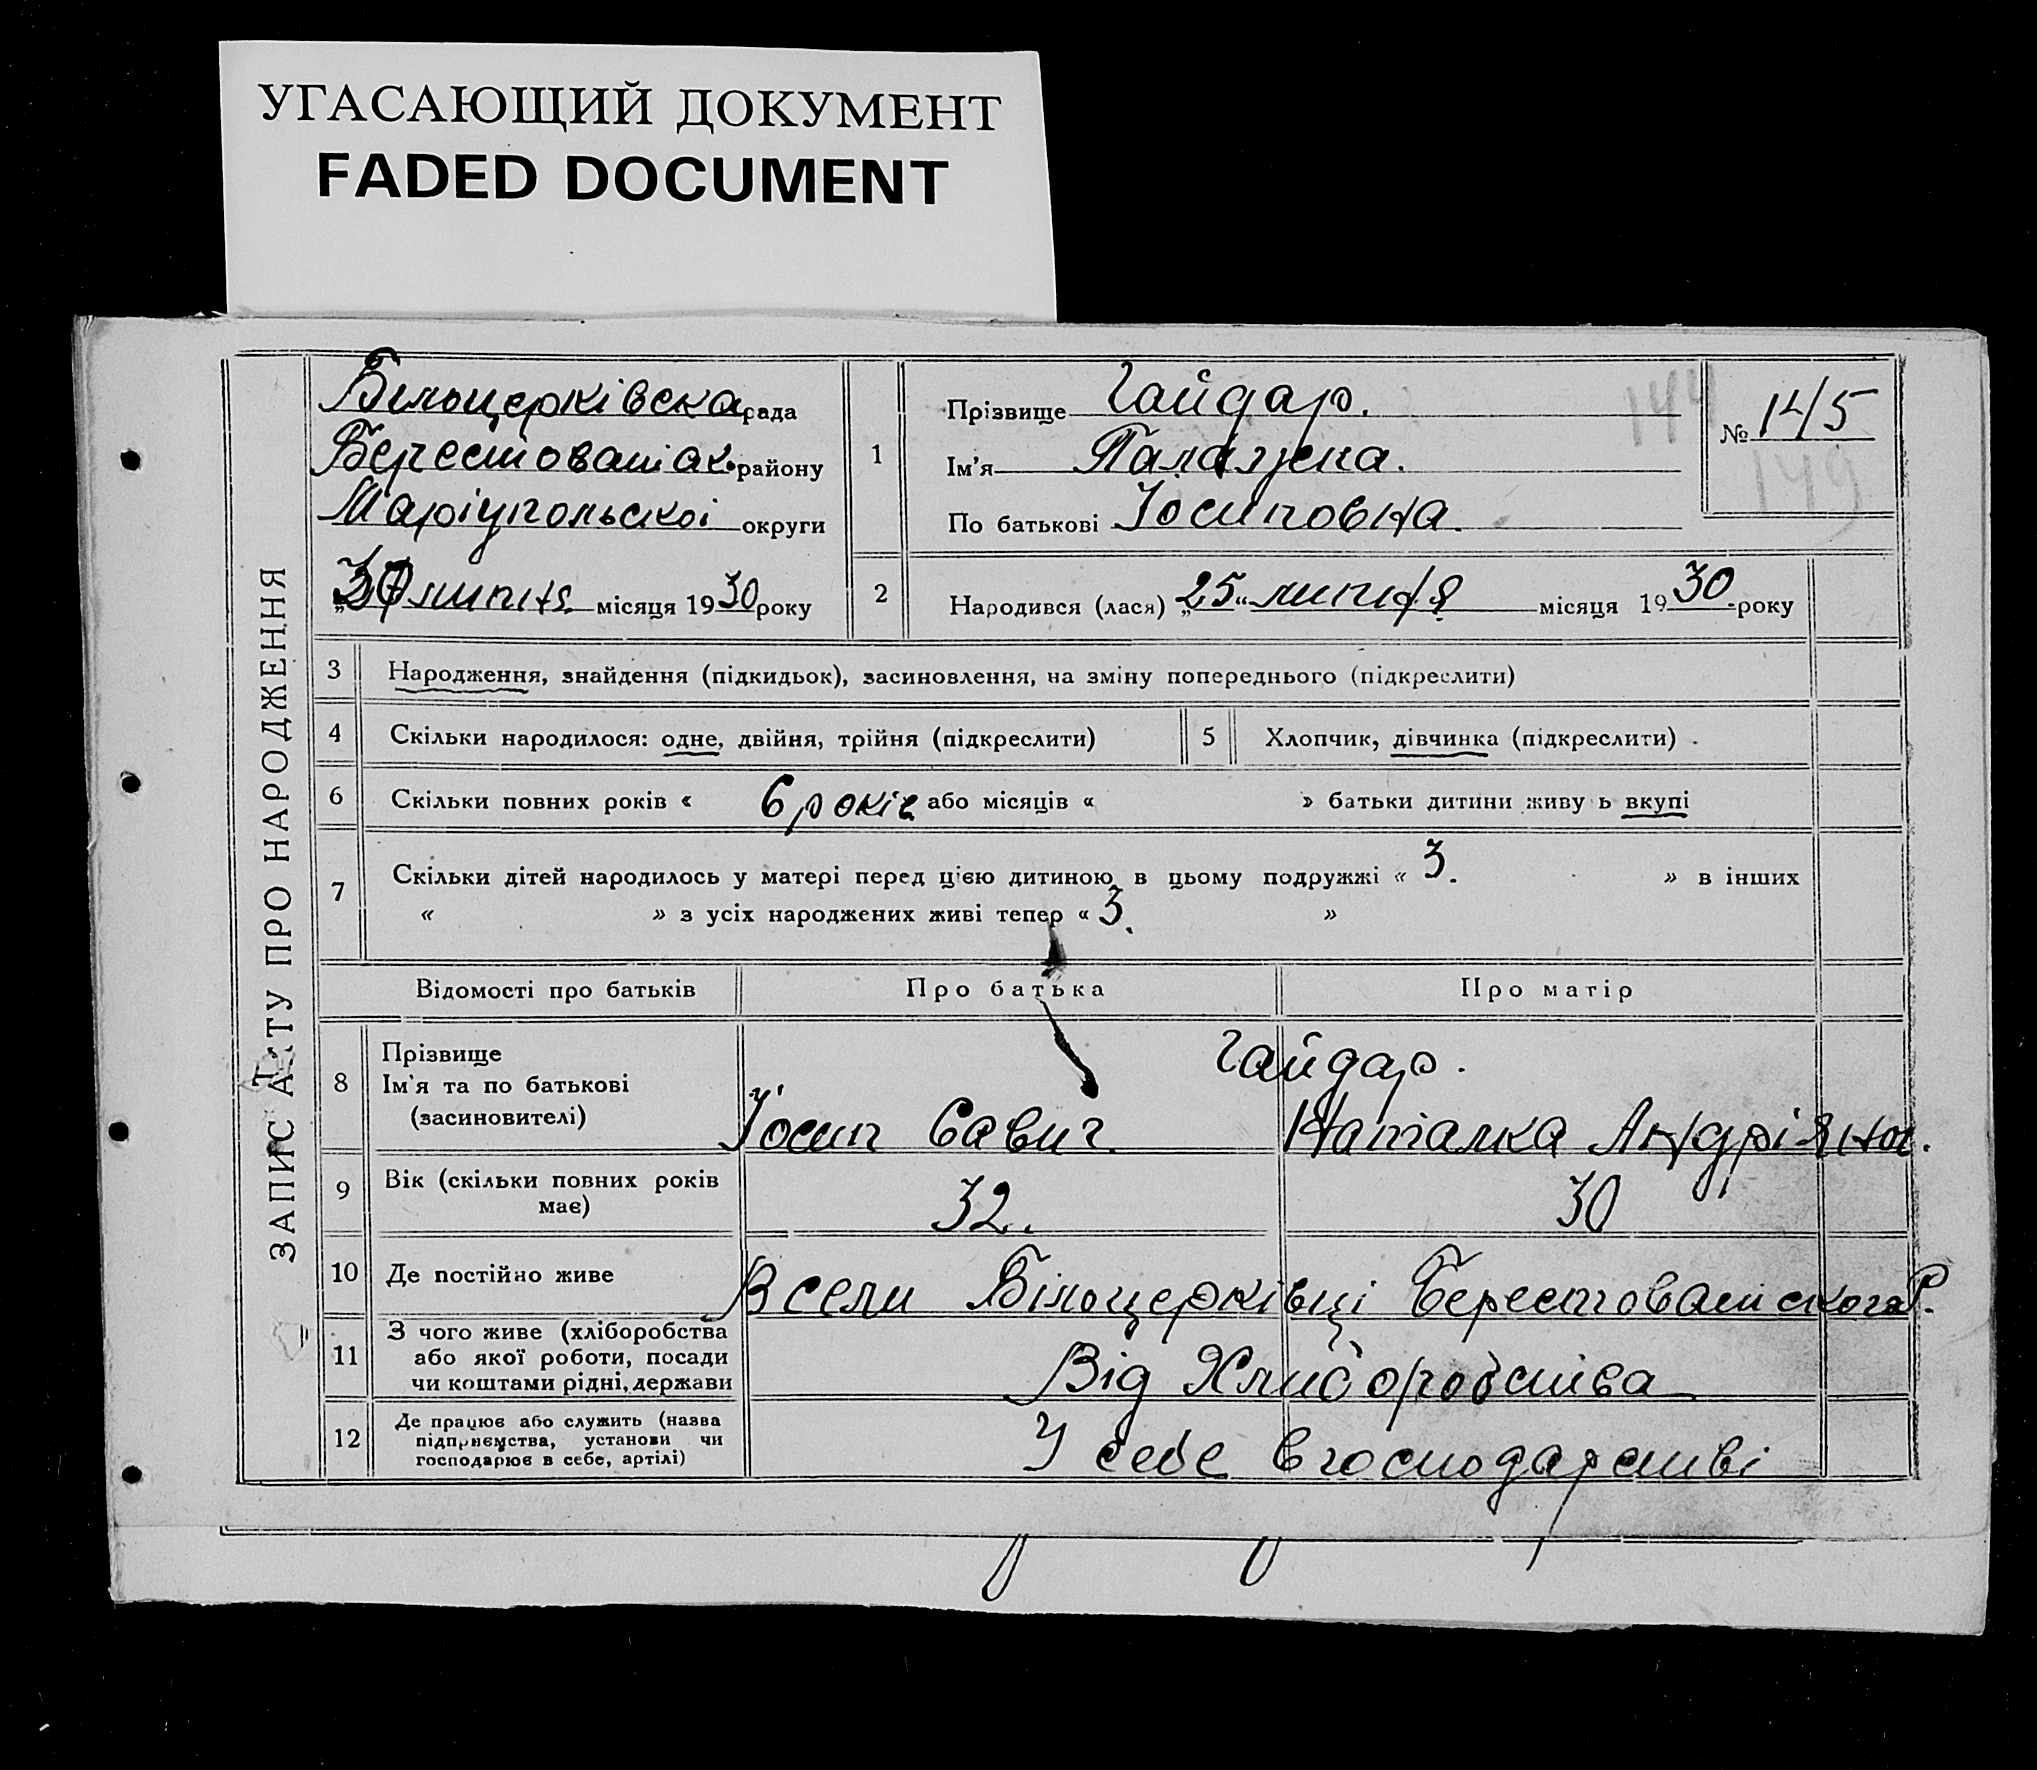 УГАСАЮЩИЙ ДОКУМЕНТ
FADED DOCUMENT
ЗАПИС АКТУ ПРО НАРОДЖЕННЯ
Білоцерківска рада
району
Маріупольскоі округи
„30 липня місяця 1930 року
1
Прізвище Гайдар.
Ім'я Палажка.
По батькові Йосиповна.
144
№ 145
149
2
Народився (лася) „25“ липня місяця 1930 року
3 Народження, знайдення (підкидьок), засиновлення, на зміну попереднього (підкреслити)
4 Скільки народилося: одне, двійня, трійня (підкреслити) 5 Хлопчик, дівчинка (підкреслити)
6 Скільки повних років « 6 років або місяців « » батьки дитини живу ь вкупі
7 Скільки дітей народилось у матері перед цією дитиною в цьому подружжі « 3. » в інших
« » з усіх народжених живі тепер « 3. »
Відомості про батьків Про батька Про матір
8 Прізвище Гайдар.
Ім'я та по батькові
(засиновителі) Йосип Савич Наталка Андріяно.
9 Вік (скільки повних років
має) 32. 30
10 Де постійно живе В сели Білоцерківці Берестоваискога Р.
11 З чого живе (хліборобства
або якої роботи, посади
чи коштами рідні, держави Від Хлиборобства
12 Де працює або служить (назва
підприємства, установи чи
господарює в себе, артілі) У себе в господарстві